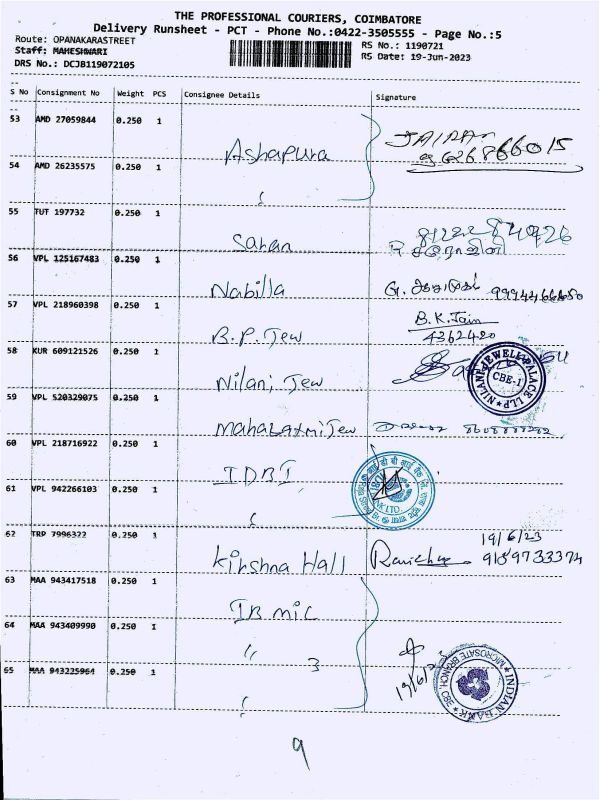 THE PROFESSIONAL COURIERS, COIMBATORE
Delivery Runsheet - PCT - Phone No.:0422-3505555 - Page No.:5
Route: OPANAKARASTREET
Staff: MAHESHWARI
DRS No.: DCJB119072105
RS No.: 1190721
RS Date: 19-Jun-2023
S No Consignment No Weight PCS Consignee Details Signature
53 AMD 27059844 0.250 1 Ashapura
54 AMD 26235575 0.250 1 "
55 TUT 197732 0.250 1 Saran
56 VPL 125167483 0.250 1 Nabilla
57 VPL 218960398 0.250 1 B.P. Jew B.K. Jain
4362420
58 KUR 609121526 0.250 1 Nilani Jew
CBE-1
59 VPL 520329075 0.250 1 Mahalaxmi Jew
60 VPL 218716922 0.250 1 IDBI
61 VPL 942266103 0.250 1 "
62 TRP 7996322 0.250 1 Kirshna Hall 19/6/23
9189733374
63 MAA 943417518 0.250 1 IB mic
64 MAA 943409990 0.250 1 " 3
65 MAA 943225964 0.250 1 "
INDIAN BANK
MICROSATE BRANCH, CBE
9